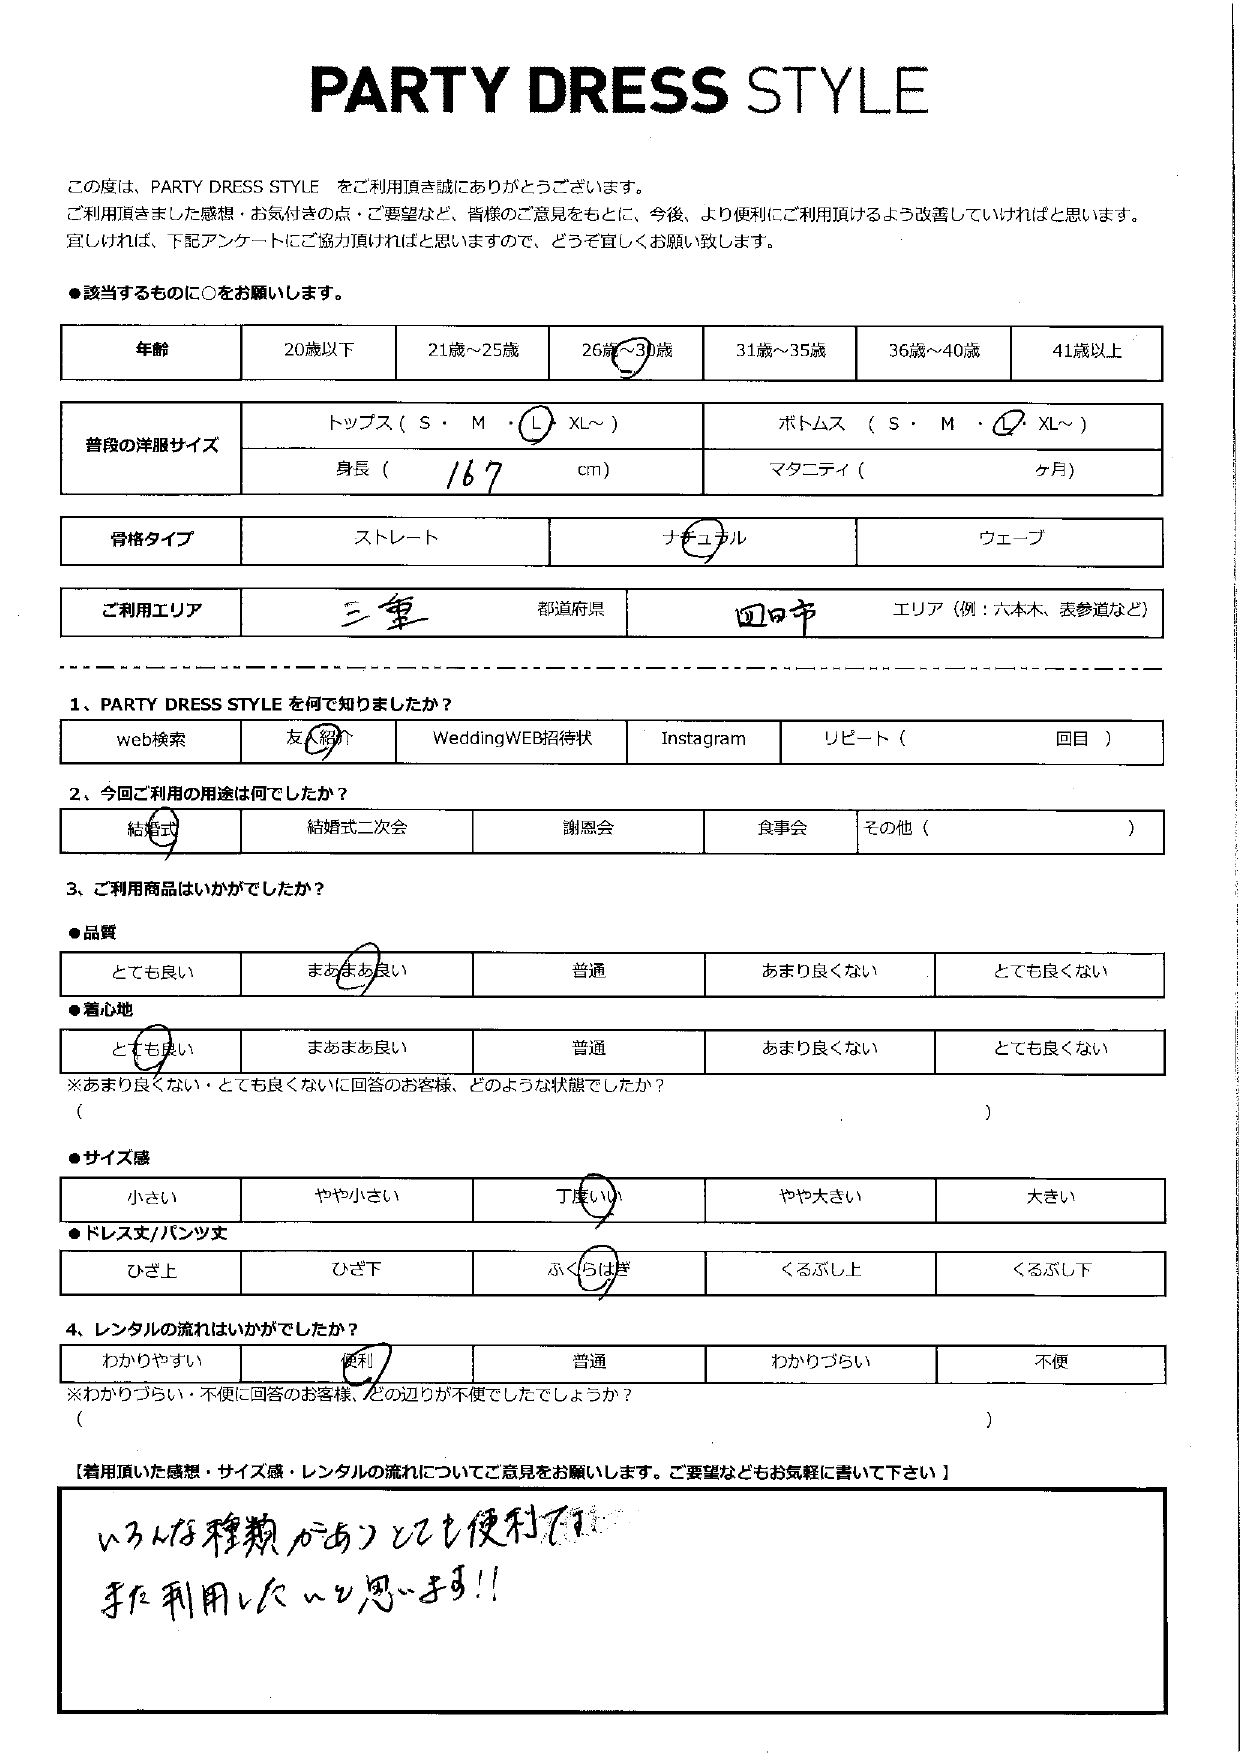 PARTY DRESS STYLE
この度は、PARTY DRESS STYLE　をご利用頂き誠にありがとうございます。
ご利用頂きました感想・お気付きの点・ご要望など、皆様のご意見をもとに、今後、より便利にご利用頂けるよう改善していければと思います。
宜しければ、下記アンケートにご協力頂ければと思いますので、どうぞ宜しくお願い致します。
●該当するものに○をお願いします。
年齢 20歳以下 21歳～25歳 26歳～30歳 31歳～35歳 36歳～40歳 41歳以上
普段の洋服サイズ トップス ( S ・ M ・ L ・ XL～ ) ボトムス ( S ・ M ・ L ・ XL～ )
身長 ( 167 cm) マタニティ ( ヶ月)
骨格タイプ ストレート ナチュラル ウェーブ
ご利用エリア 三重 都道府県 四日市 エリア（例：六本木、表参道など）
1、PARTY DRESS STYLE を何で知りましたか？
web検索 友人紹介 WeddingWEB招待状 Instagram リピート（ 回目 ）
2、今回ご利用の用途は何でしたか？
結婚式 結婚式二次会 謝恩会 食事会 その他（ ）
3、ご利用商品はいかがでしたか？
●品質
とても良い まあまあ良い 普通 あまり良くない とても良くない
●着心地
とても良い まあまあ良い 普通 あまり良くない とても良くない
※あまり良くない・とても良くないに回答のお客様、どのような状態でしたか？
( )
●サイズ感
小さい やや小さい 丁度いい やや大きい 大きい
●ドレス丈/パンツ丈
ひざ上 ひざ下 ふくらはぎ くるぶし上 くるぶし下
4、レンタルの流れはいかがでしたか？
わかりやすい 便利 普通 わかりづらい 不便
※わかりづらい・不便に回答のお客様、どの辺りが不便でしたでしょうか？
( )
【着用頂いた感想・サイズ感・レンタルの流れについてご意見をお願いします。ご要望などもお気軽に書いて下さい 】
いろんな種類があり とても便利です
また利用したいと思います!!